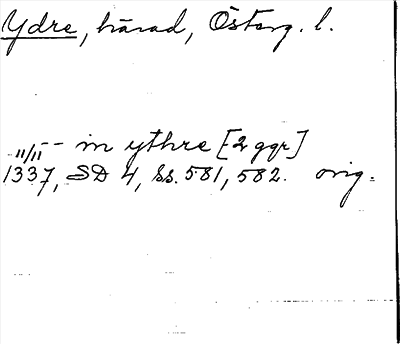 Ydre, härad, Österg. l.
11/11 -- in ythre [2 ggr]
1337, SD 4, ss. 581, 582. orig.